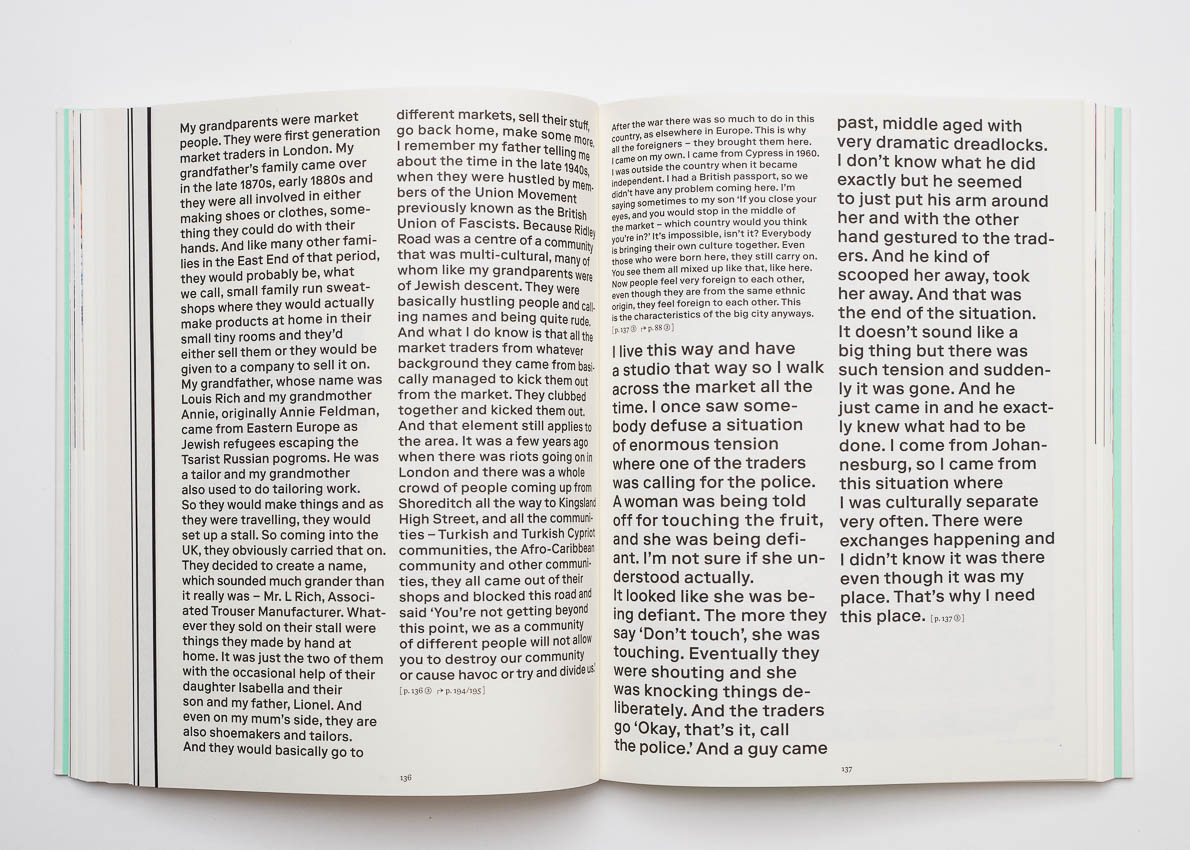 My grandparents were market
people. They were first generation
market traders in London. My
grandfather's family came over
in the late 1870s, early 1880s and
they were all involved in either
making shoes or clothes, some-
thing they could do with their
hands. And like many other fami-
lies in the East End of that period,
they would probably be, what
we call, small family run sweat-
shops where they would actually
make products at home in their
small tiny rooms and they'd
either sell them or they would be
given to a company to sell it on.
My grandfather, whose name was
Louis Rich and my grandmother
Annie, originally Annie Feldman,
came from Eastern Europe as
Jewish refugees escaping the
Tsarist Russian pogroms. He was
a tailor and my grandmother
also used to do tailoring work.
So they would make things and as
they were travelling, they would
set up a stall. So coming into the
UK, they obviously carried that on.
They decided to create a name,
which sounded much grander than
it really was – Mr. L Rich, Associ-
ated Trouser Manufacturer. What-
ever they sold on their stall were
things they made by hand at
home. It was just the two of them
with the occasional help of their
daughter Isabella and their
son and my father, Lionel. And
even on my mum's side, they are
also shoemakers and tailors.
And they would basically go to
different markets, sell their stuff,
go back home, make some more.
I remember my father telling me
about the time in the late 1940s,
when they were hustled by mem-
bers of the Union Movement
previously known as the British
Union of Fascists. Because Ridley
Road was a centre of a community
that was multi-cultural, many of
whom like my grandparents were
of Jewish descent. They were
basically hustling people and call-
ing names and being quite rude.
And what I do know is that all the
market traders from whatever
background they came from basi-
cally managed to kick them out
from the market. They clubbed
together and kicked them out.
And that element still applies to
the area. It was a few years ago
when there was riots going on in
London and there was a whole
crowd of people coming up from
Shoreditch all the way to Kingsland
High Street, and all the communi-
ties – Turkish and Turkish Cypriot
communities, the Afro-Caribbean
community and other communi-
ties, they all came out of their
shops and blocked this road and
said 'You're not getting beyond
this point, we as a community
of different people will not allow
you to destroy our community
or cause havoc or try and divide us.'
[p. 136 ③ ↱ p. 194/195]
136
After the war there was so much to do in this
country, as elsewhere in Europe. This is why
all the foreigners – they brought them here.
I came on my own. I came from Cypress in 1960.
I was outside the country when it became
independent. I had a British passport, so we
didn't have any problem coming here. I'm
saying sometimes to my son 'If you close your
eyes, and you would stop in the middle of
the market – which country would you think
you're in?' It's impossible, isn't it? Everybody
is bringing their own culture together. Even
those who were born here, they still carry on.
You see them all mixed up like that, like here.
Now people feel very foreign to each other,
even though they are from the same ethnic
origin, they feel foreign to each other. This
is the characteristics of the big city anyways.
[p. 137 ↱ p. 88]
I live this way and have
a studio that way so I walk
across the market all the
time. I once saw some-
body defuse a situation
of enormous tension
where one of the traders
was calling for the police.
A woman was being told
off for touching the fruit,
and she was being defi-
ant. I'm not sure if she un-
derstood actually.
It looked like she was be-
ing defiant. The more they
say 'Don't touch', she was
touching. Eventually they
were shouting and she
was knocking things de-
liberately. And the traders
go 'Okay, that's it, call
the police.' And a guy came
past, middle aged with
very dramatic dreadlocks.
I don't know what he did
exactly but he seemed
to just put his arm around
her and with the other
hand gestured to the trad-
ers. And he kind of
scooped her away, took
her away. And that was
the end of the situation.
It doesn't sound like a
big thing but there was
such tension and sudden-
ly it was gone. And he
just came in and he exact-
ly knew what had to be
done. I come from Johan-
nesburg, so I came from
this situation where
I was culturally separate
very often. There were
exchanges happening and
I didn't know it was there
even though it was my
place. That's why I need
this place. [p. 137]
137